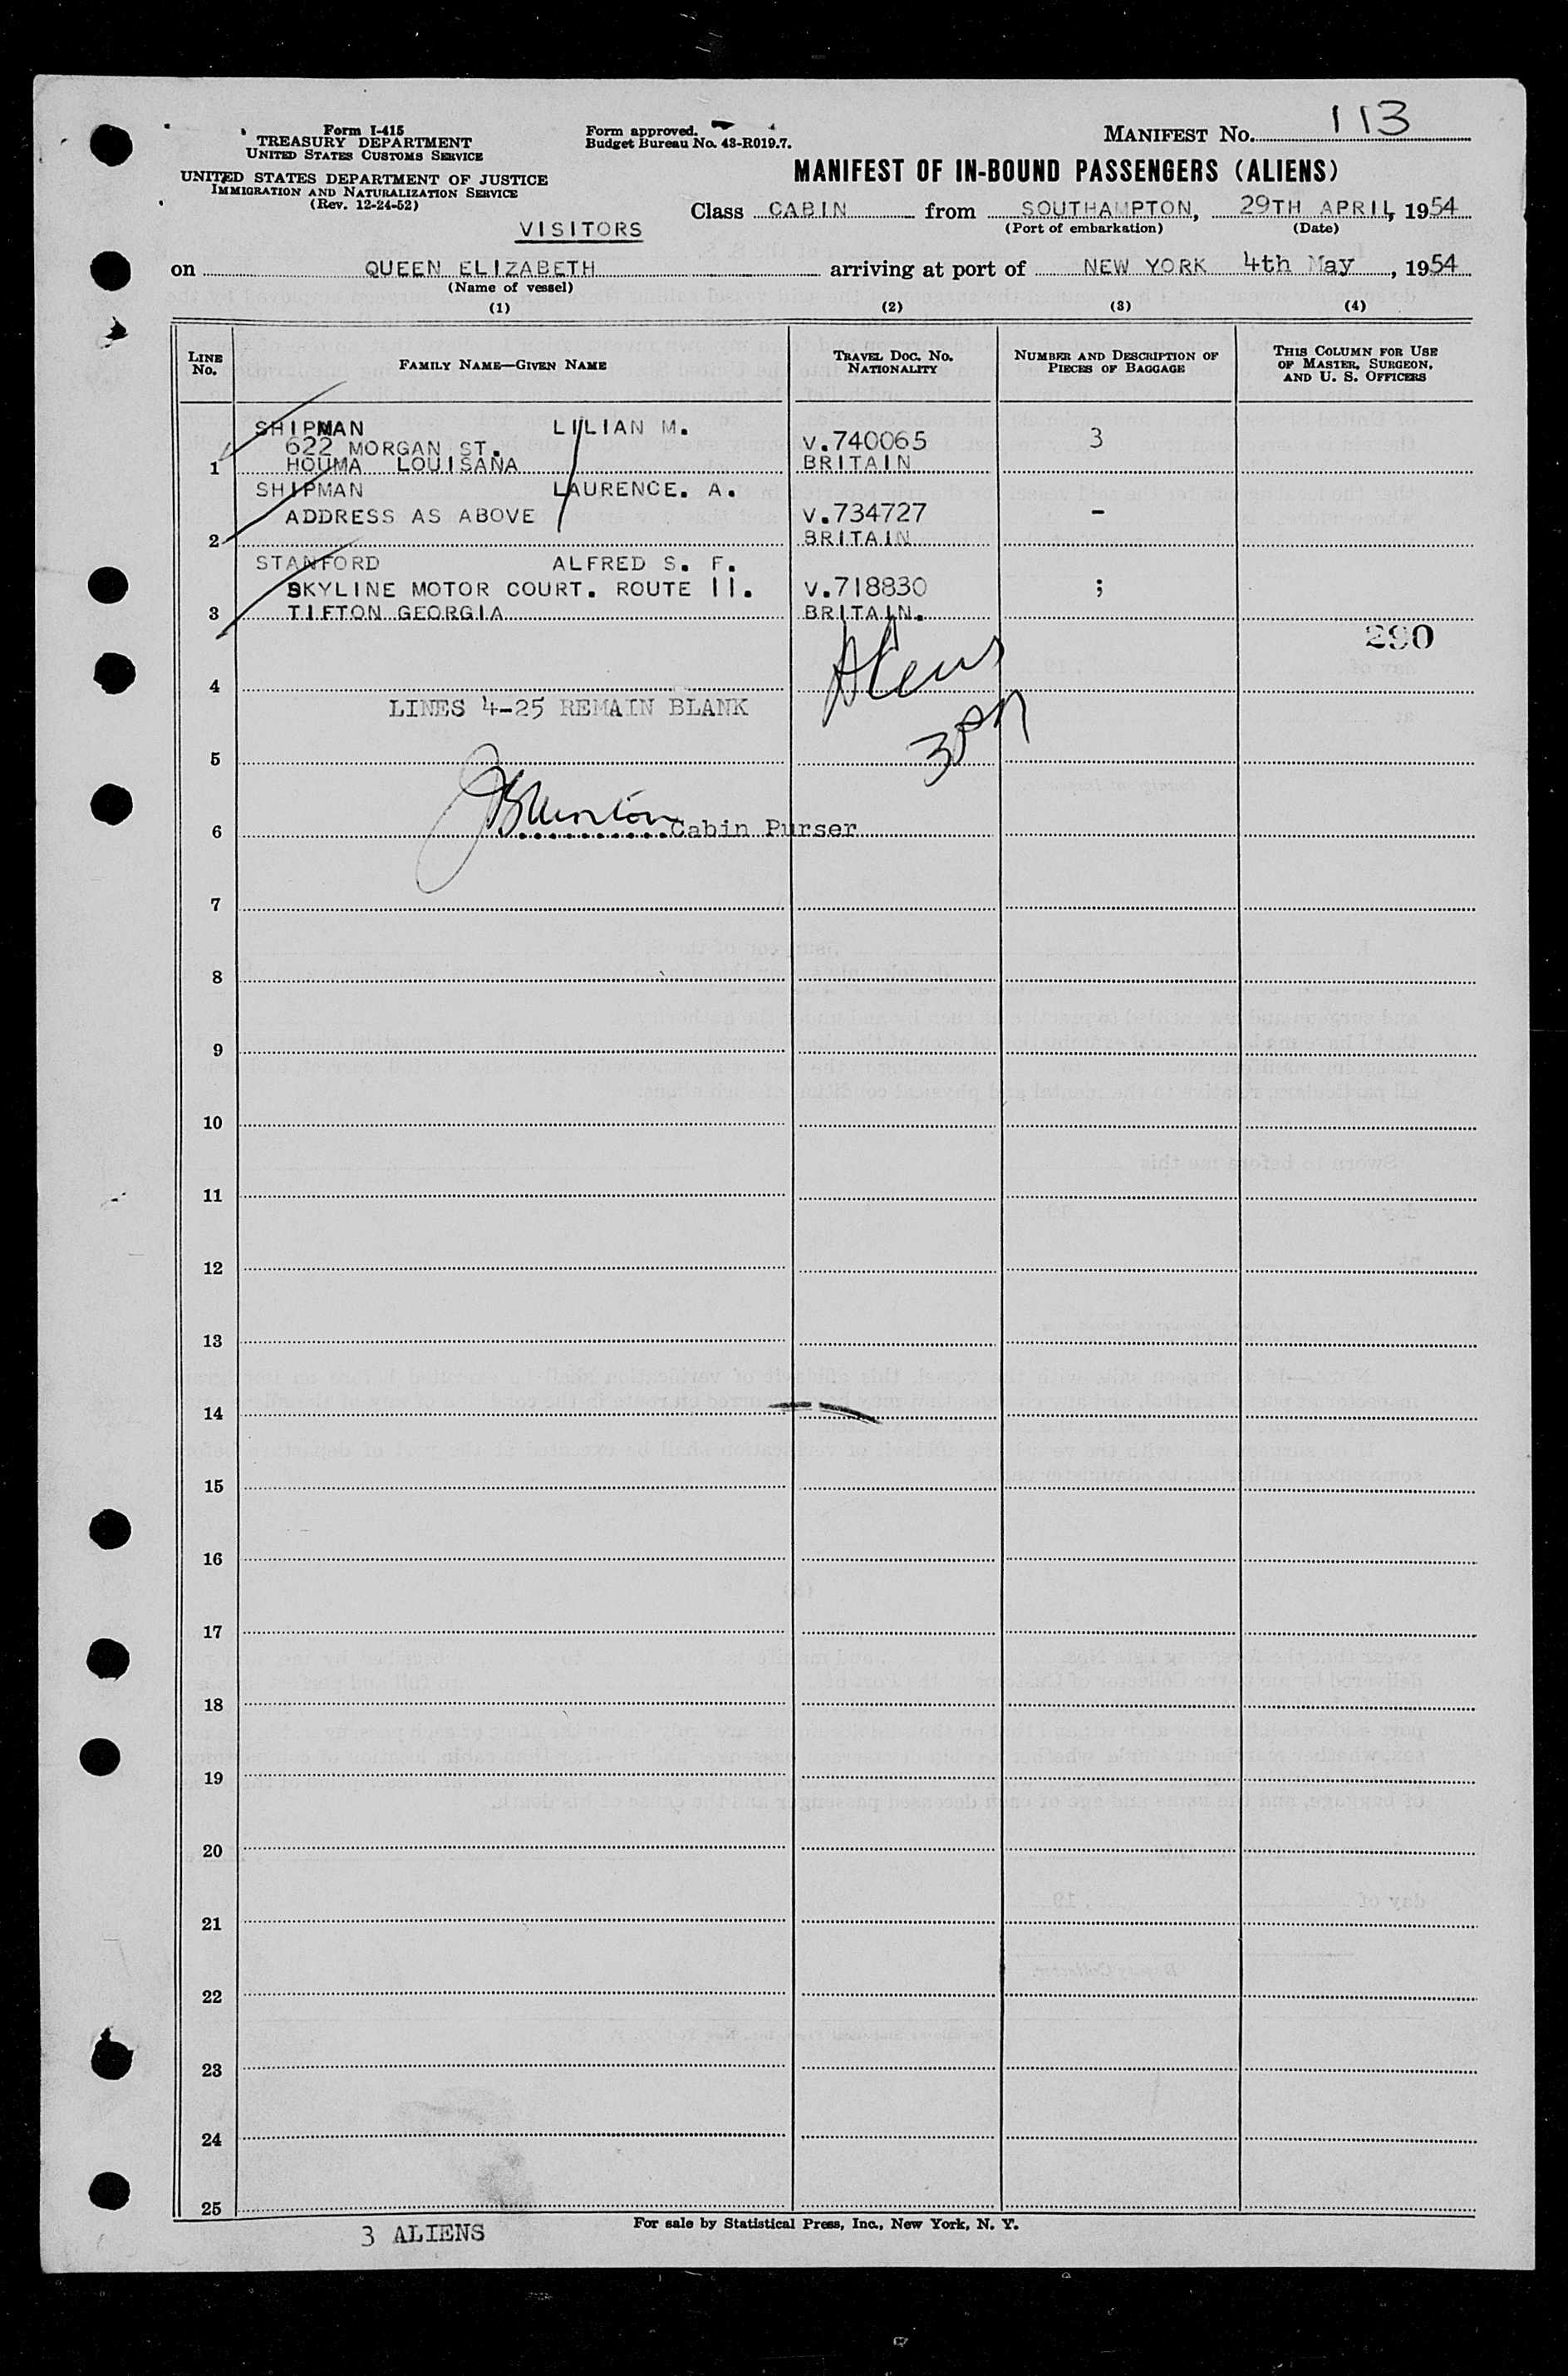 Form I-415
TREASURY DEPARTMENT
UNITED STATES CUSTOMS SERVICE
UNITED STATES DEPARTMENT OF JUSTICE
IMMIGRATION AND NATURALIZATION SERVICE
(Rev. 12-24-52)
Form approved.
Budget Bureau No. 43-R019.7.
MANIFEST No. 113
MANIFEST OF IN-BOUND PASSENGERS (ALIENS)
Class CABIN from SOUTHAMPTON, 29TH APRIL, 1954
(Port of embarkation) (Date)
VISITORS
on QUEEN ELIZABETH arriving at port of NEW YORK 4th May, 1954
(Name of vessel)
(1) (2) (3) (4)
LINE No. FAMILY NAME—GIVEN NAME TRAVEL DOC. NO. NATIONALITY NUMBER AND DESCRIPTION OF PIECES OF BAGGAGE THIS COLUMN FOR USE OF MASTER, SURGEON, AND U. S. OFFICERS
SHIPMAN LILIAN M.
622 MORGAN ST. V.740065 3
1 HOUMA LOUISANA BRITAIN
SHIPMAN LAURENCE. A.
ADDRESS AS ABOVE V.734727 -
2 BRITAIN
STANFORD ALFRED S. F.
SKYLINE MOTOR COURT. ROUTE 11. V.718830 ;
3 TIFTON GEORGIA BRITAIN.
290
4
LINES 4-25 REMAIN BLANK
5
6 Cabin Purser
7
8
9
10
11
12
13
14
15
16
17
18
19
20
21
22
23
24
25
3 ALIENS
For sale by Statistical Press, Inc., New York, N. Y.